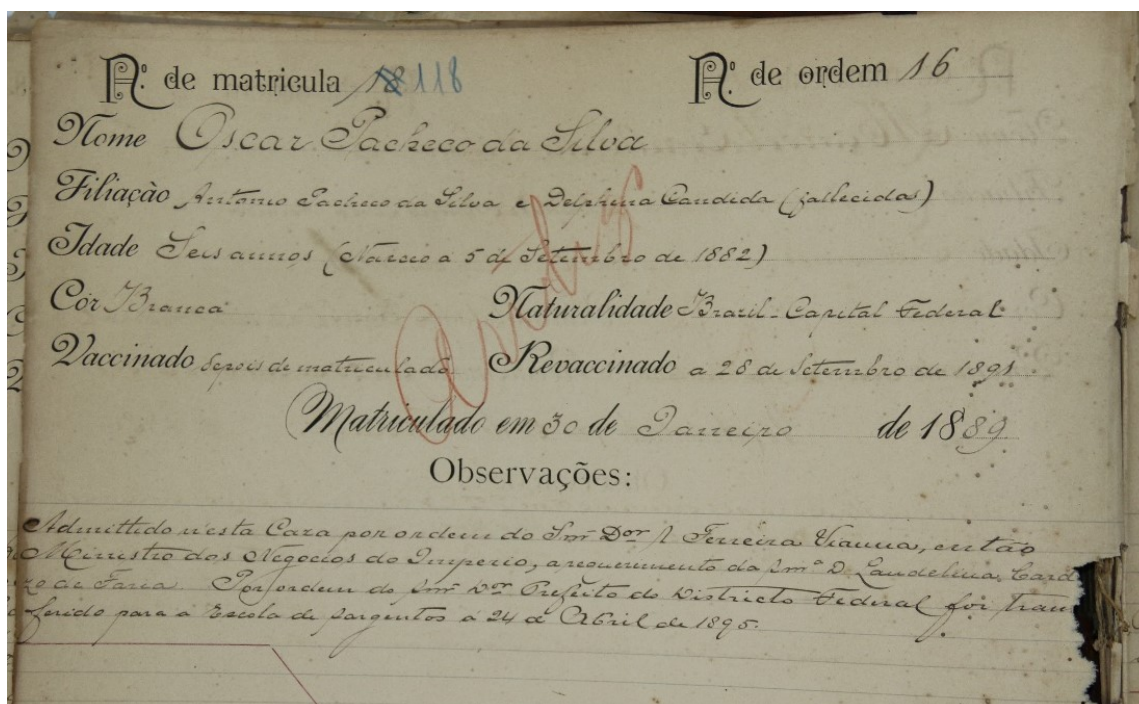 Nº de matricula 18 118 Nº de ordem 16
Nome Oscar Pacheco da Silva
Filiação Antonio Pacheco da Silva e Delphina Candida (fallecidos)
Idade Seis annos (Nasceu a 5 de Setembro de 1882)
Côr Branca Naturalidade Brazil - Capital Federal
Vaccinado depois de matriculado Revaccinado a 28 de Setembro de 1891
Matriculado em 30 de Janeiro de 1889
Observações:
Admittido n'esta Caza por ordem do Snr Dor Ferreira Vianna, então
Ministro dos Negocios do Imperio, a requerimento da Snra D. Laudelina Card
zo de Faria. Por ordem do Snr Dor Prefeito do Districto Federal foi trans
ferido para a Escola de Sargentos a 24 de Abril de 1895.